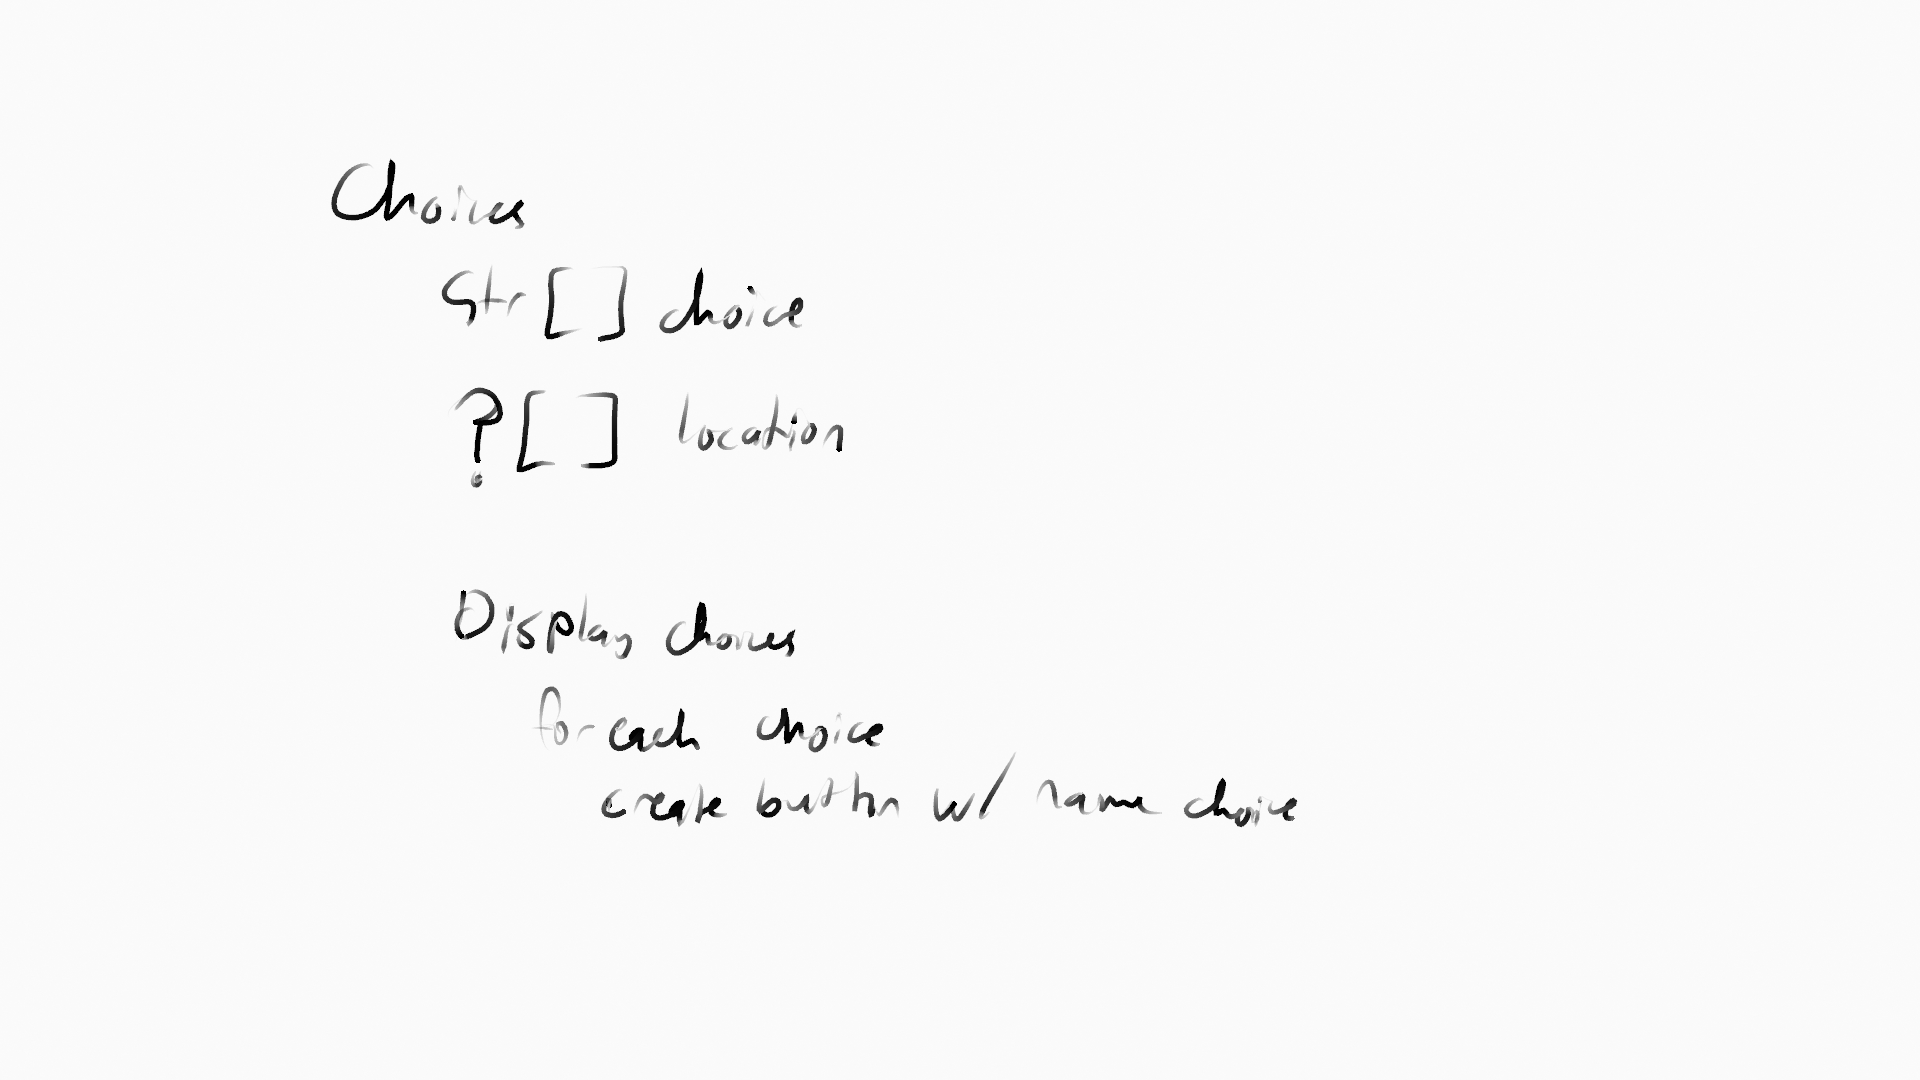 Choices
Str[] choice
?[] location
Display choices
for each choice
create button w/ name choice